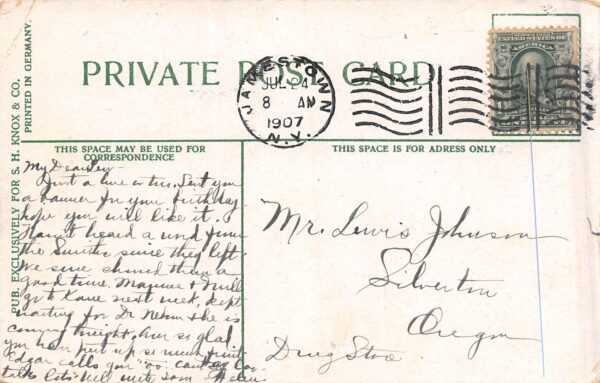 PRIVATE POST CARD
JAMESTOWN
JUL 24
8 AM
1907
N.Y.
SERIES 1902
UNITED STATES OF
AMERICA
PUB. EXCLUSIVELY FOR S. H. KNOX & CO.
PRINTED IN GERMANY.
THIS SPACE MAY BE USED FOR
CORRESPONDENCE
THIS SPACE IS FOR ADRESS ONLY
My Dear
Just a line or two. Sent you
a banner for your birthday
hope you will like it.
Haven't heard a word from
the Smiths since they left.
We sure showed them a
good time. Mayme & Nell
go to Kane next week, kept
waiting for Dr & she is
coming tonight. Am so glad
you have put up so much fruit
Edgar calls you "oo"
talks lots. Will write soon
Mr. Lewis Johnson
Silverton
Oregon
Drug Store